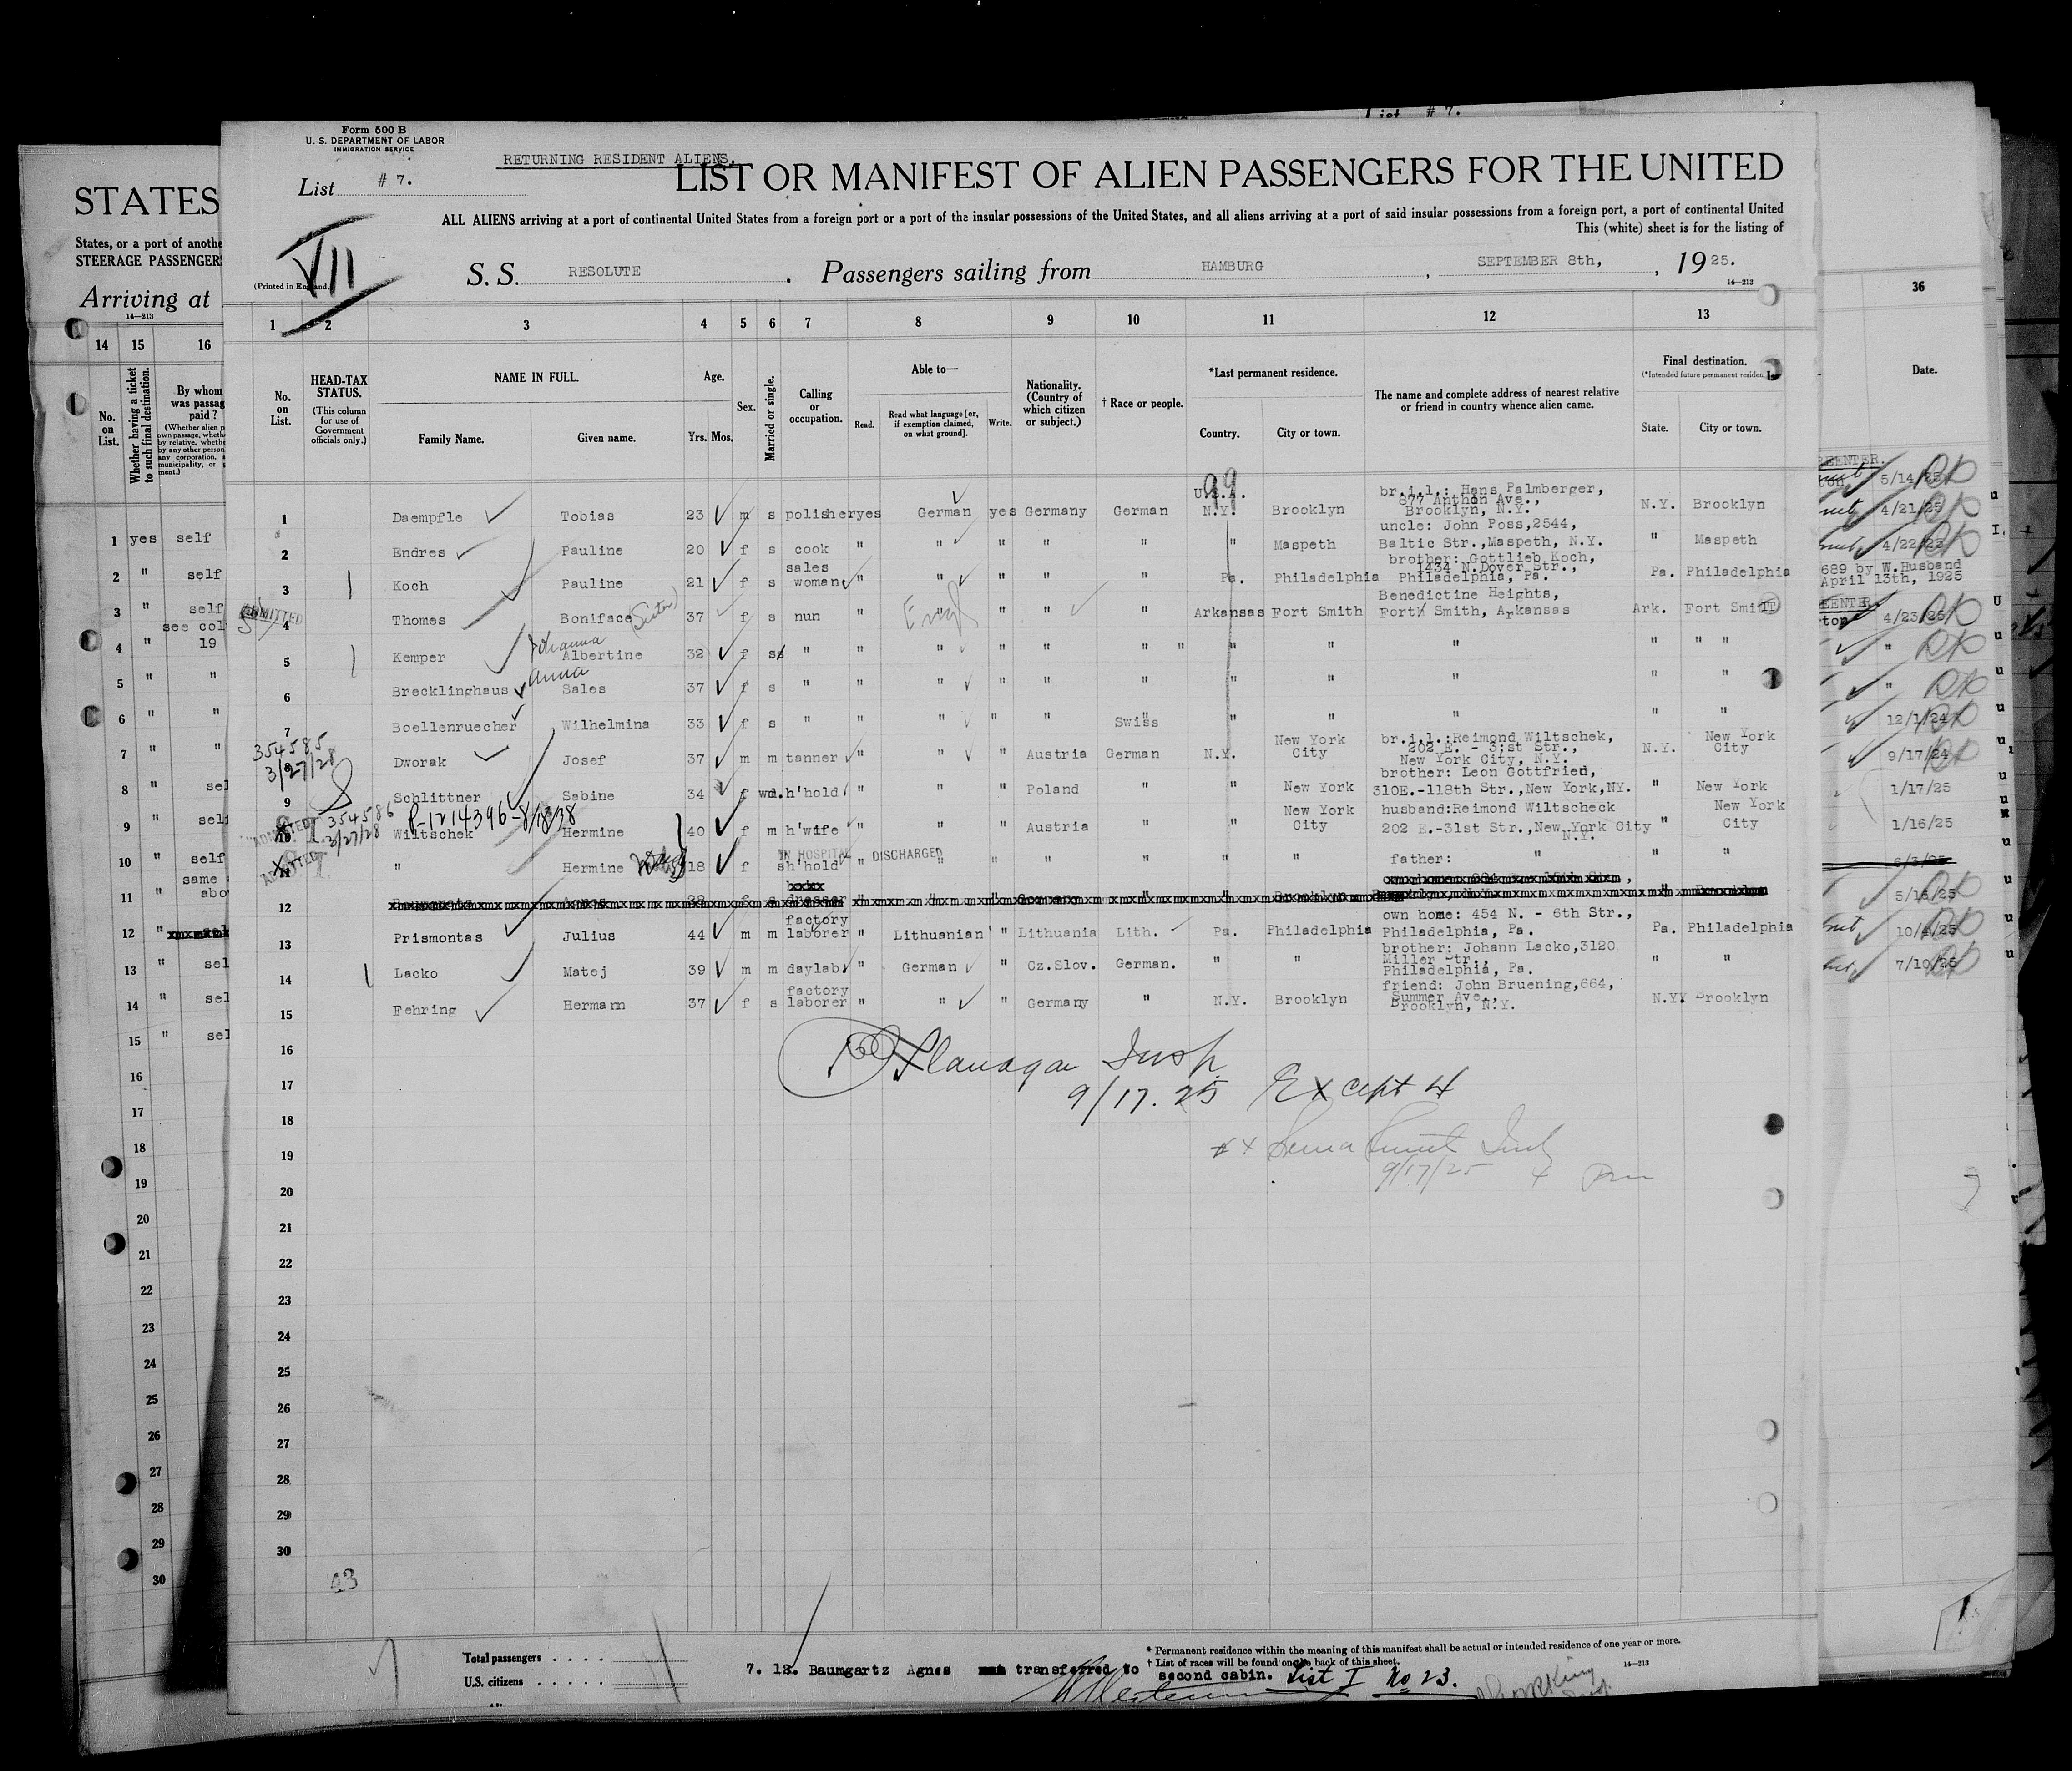 List # 7.
Form 500 B
U. S. DEPARTMENT OF LABOR
IMMIGRATION SERVICE
RETURNING RESIDENT ALIENS.
List # 7.
LIST OR MANIFEST OF ALIEN PASSENGERS FOR THE UNITED
ALL ALIENS arriving at a port of continental United States from a foreign port or a port of the insular possessions of the United States, and all aliens arriving at a port of said insular possessions from a foreign port, a port of continental United
This (white) sheet is for the listing of
VII
(Printed in England.)
S. S. RESOLUTE . Passengers sailing from HAMBURG , SEPTEMBER 8th, , 19 25.
14—213
1 2 3 4 5 6 7 8 9 10 11 12 13
No. on List.
HEAD-TAX STATUS.
(This column for use of Government officials only.)
NAME IN FULL.
Family Name. Given name.
Age.
Yrs. Mos.
Sex.
Married or single.
Calling or occupation.
Able to—
Read. Read what language [or, if exemption claimed, on what ground]. Write.
Nationality. (Country of which citizen or subject.)
† Race or people.
*Last permanent residence.
Country. City or town.
The name and complete address of nearest relative or friend in country whence alien came.
Final destination.
(*Intended future permanent residence.)
State. City or town.
99
1 Daempfle Tobias 23 m s polisher yes German yes Germany German U.S.A. N.Y. Brooklyn br.i.l.: Hans Palmberger, 877 Anthon Ave., Brooklyn, N.Y. N.Y. Brooklyn
2 Endres Pauline 20 f s cook " " " " " " Maspeth uncle: John Poss,2544, Baltic Str.,Maspeth, N.Y. " Maspeth
3 Koch Pauline 21 f s sales woman " " " " " Pa. Philadelphia brother: Gottlieb Koch, 1434 N.Dover Str., Philadelphia, Pa. Pa. Philadelphia
4 Thomes Boniface (Sister) 37 f s nun " Engl " " " Arkansas Fort Smith Benedictine Heights, Fort Smith, Arkansas Ark. Fort Smith
5 Kemper Johanna Albertine 32 f s " " " " " " " " " " " " "
6 Brecklinghaus Anna Sales 37 f s " " " " " " " " " " "
7 Boellenruecher Wilhelmina 33 f s " " " " " Swiss " " " " "
354585
3/27/28
8 Dworak Josef 37 m m tanner " " Austria German N.Y. New York City br.i.l.:Reimond Wiltschek, 202 E. - 31st Str., New York City, N.Y. N.Y. New York City
9 Schlittner Sabine 34 f wd. h'hold " " " Poland " " New York brother: Leon Gottfried, 310E.-118th Str.,New York,NY. " New York
354586
3/27/28
R-1214396-8/18/38
ADMITTED
10 Wiltschek Hermine 40 f m h'wife " " " Austria " " New York City husband:Reimond Wiltscheck 202 E.-31st Str.,New York City N.Y. " New York City
IN HOSPITAL DISCHARGED
ADMITTED
11 " Hermine 18 f s h'hold " " " " " " " father: " " "
12
13 Prismontas Julius 44 m m factory laborer " Lithuanian " Lithuania Lith. Pa. Philadelphia own home: 454 N. - 6th Str., Philadelphia, Pa. Pa. Philadelphia
14 Lacko Matej 39 m m daylab. " German " Cz.Slov. German. " " brother: Johann Lacko,3120 Miller Str., Philadelphia, Pa. " "
15 Fehring Hermann 37 f s factory laborer " " " Germany " N.Y. Brooklyn friend: John Bruening,664, Summer Ave., Brooklyn, N.Y. N.Y. Brooklyn
16
Flanagan Insp.
17
9/17.25 Except 4
18
19
9/17/25
20
21
22
23
24
25
26
27
28
29
30
43
Total passengers . . . .
U.S. citizens . . . . .
* Permanent residence within the meaning of this manifest shall be actual or intended residence of one year or more.
† List of races will be found on the back of this sheet.
14—213
7. 12. Baumgartz Agnes transferred to second cabin. List I No 23.
STATES
States, or a port of anothe
STEERAGE PASSENGERS
Arriving at
14—213
14 15 16
No. on List.
Whether having a ticket to such final destination.
By whom was passag paid ?
1 yes self
2 " self
3 " self
see col
4 " 19
5 " "
6 " "
7 " "
8 " sel
9 " sel
10 " self
same
11 " abo
12 "
13 " sel
14 " sel
15 " sel
16
17
18
19
20
21
22
23
24
25
26
27
28
29
30
36
Date.
REENTER.
5/14/25
4/21/25
4/22/25
689 by W.Husband
April 13th, 1925
4/23/25
"
"
12/1/24
9/17/24
1/17/25
1/16/25
5/16/25
10/4/25
7/10/25